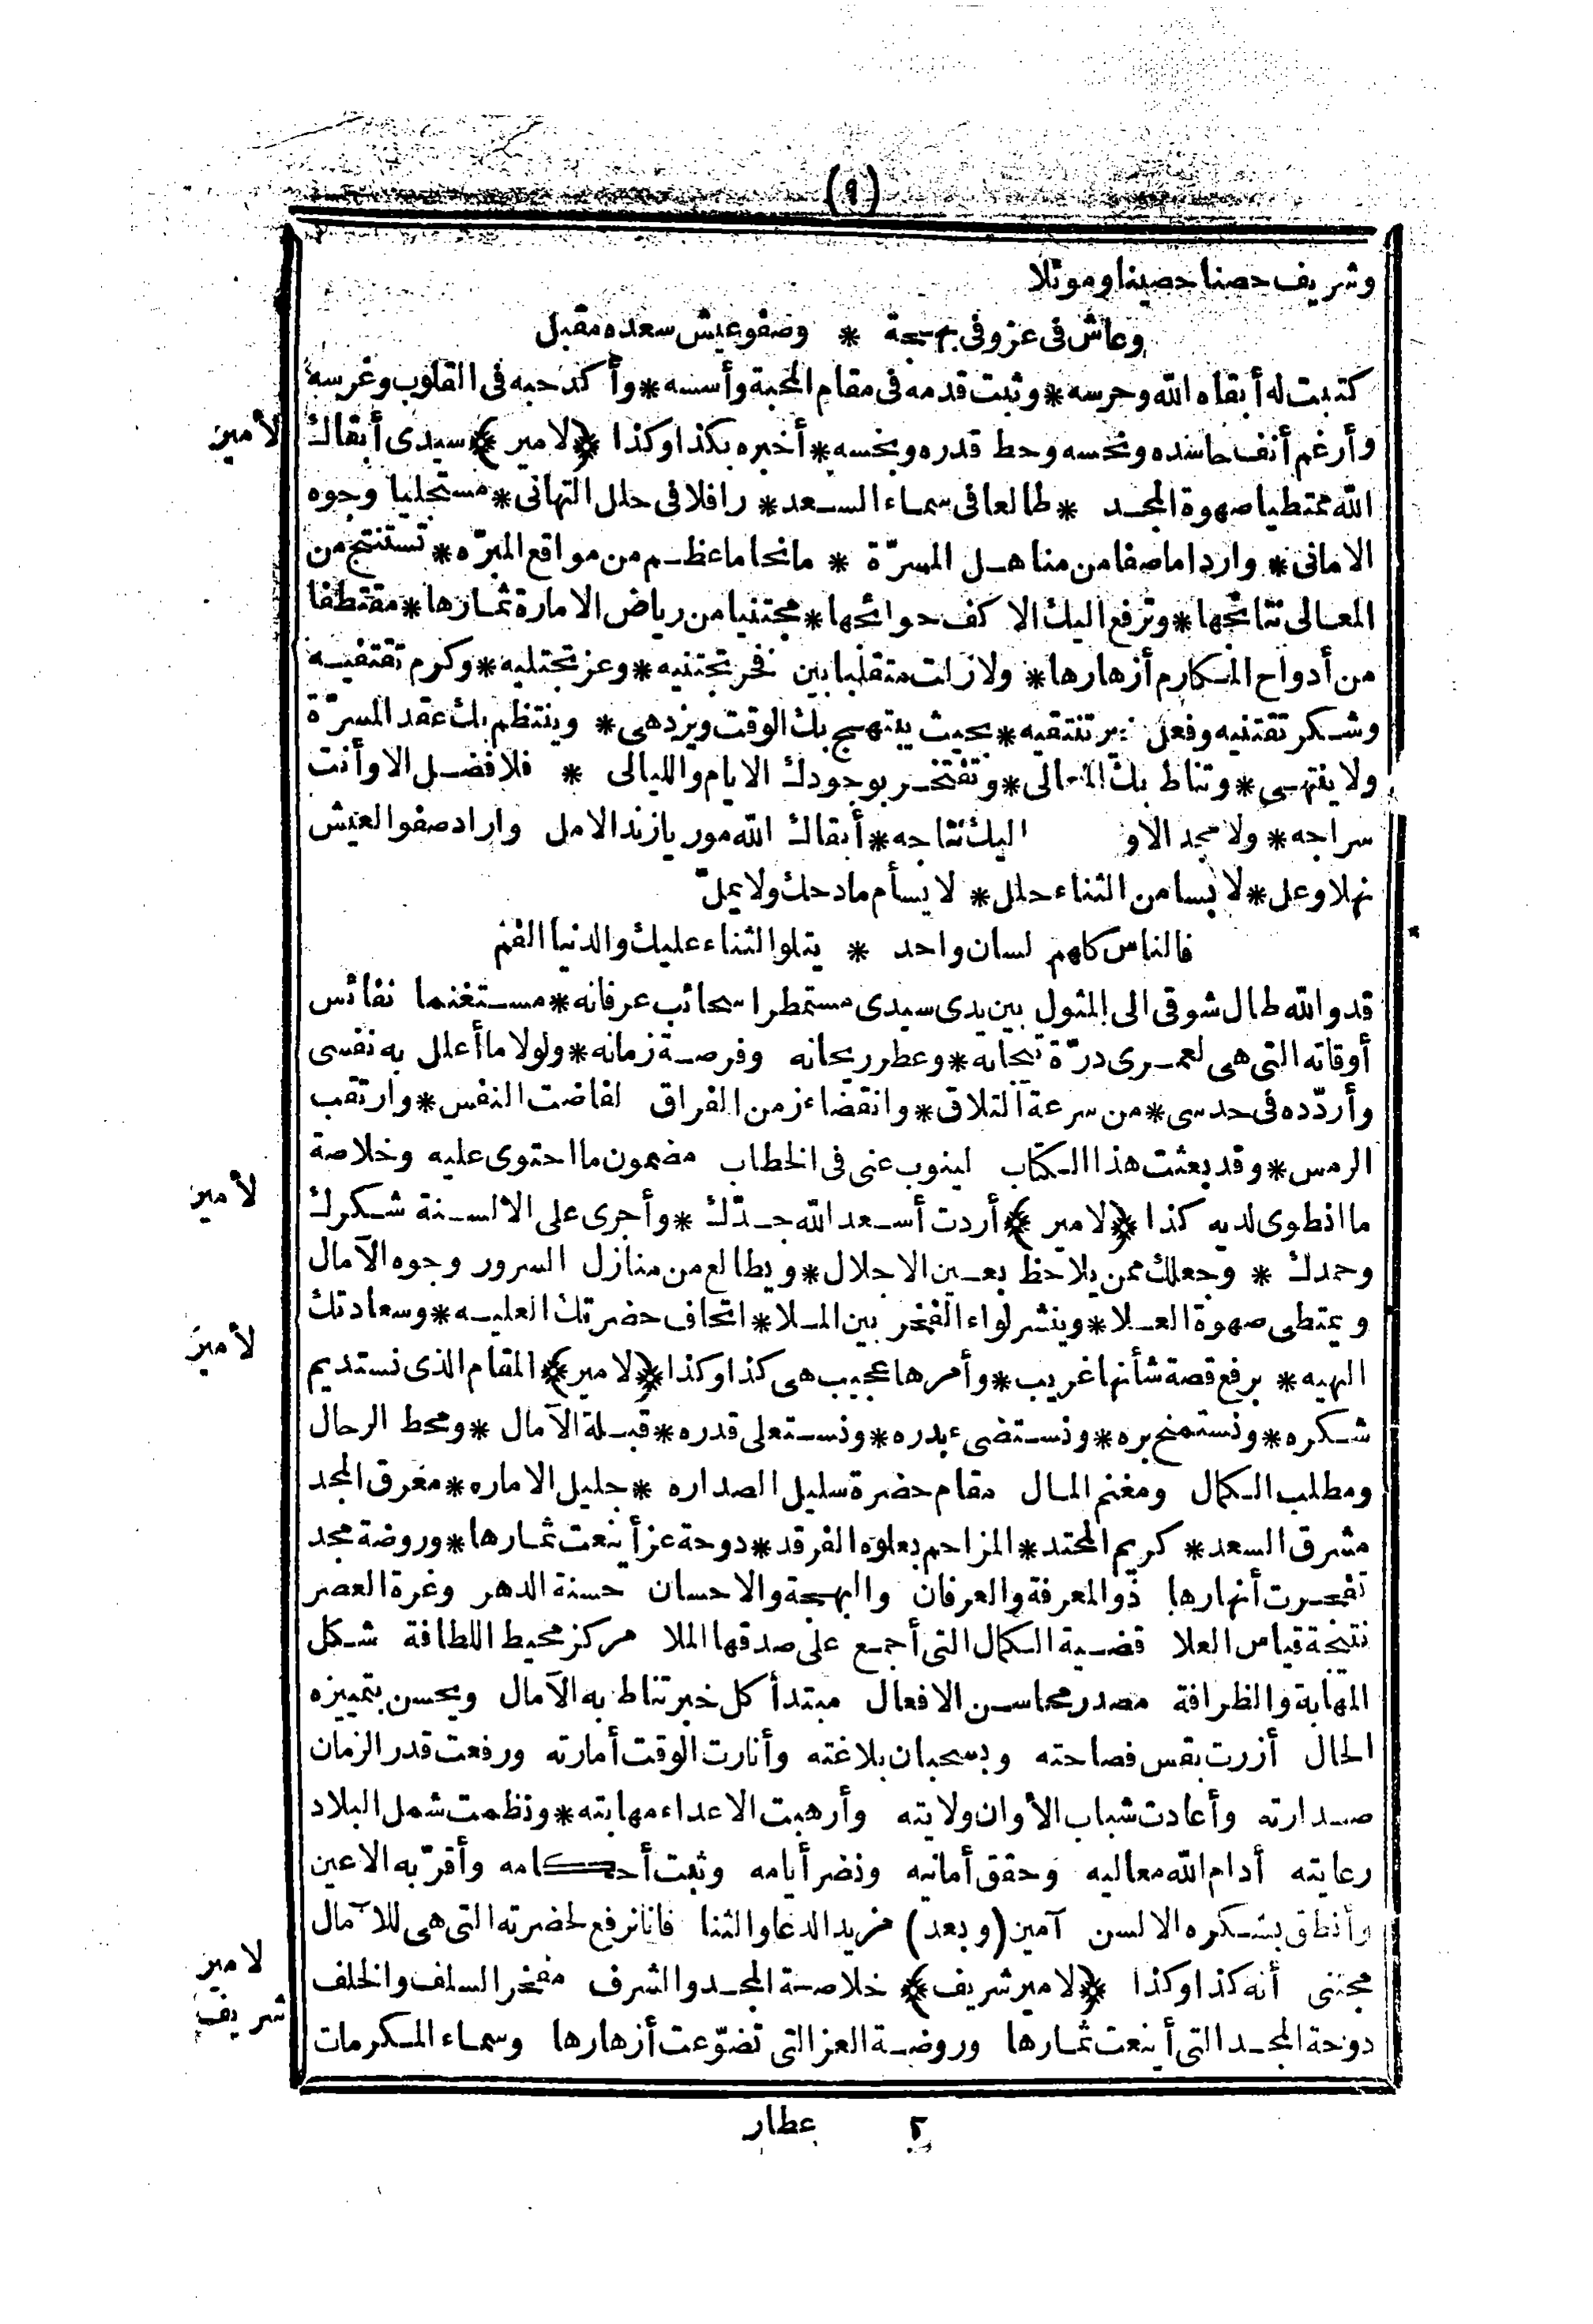 (٩)
وشريف حصنا حصينا وموئلا
وعاش فى عز وفى بهجة * وصفو عيش سعده مقبل
كتبت له أبقاه الله وحرسه * وثبت قدمه فى مقام المحبة وأسسه * وأكد حبه فى القلوب وغرسه
وأرغم أنف حاسده ونخسه وحط قدره وبخسه * أخبره بكذا وكذا ﴿لامير﴾ سيدى أبقاك
لأمير
الله ممتطيا صهوة المجد * طالعا فى سماء السعد * رافلا فى حلل التهانى * مستجليا وجوه
الامانى * واردا ما صفا من مناهل المسرّة * مانحا ما عظم من مواقع المبرّه * تستنتج من
المعالى نتائجها * وترفع اليك الاكف حوائجها * مجتنيا من رياض الامارة ثمارها * مقتطفا
من أدواح المكارم أزهارها * ولا زلت متقلبا بين فخر تجتنيه * وعز تجتليه * وكرم تقتفيه
وشكر تقتنيه وفعل تنتقيه * بحيث يبتهج بك الوقت ويزدهى * وينتظم بك عقد المسرّة
ولا ينتهى * وتناط بك المعالى * وتفتخر بوجودك الايام والليالى * فلا فضل الا وأنت
سراجه * ولا مجد الا و اليك نتاجه * أبقاك الله موريا زند الامل واراد صفو العيش
نهلا وعل * لابسا من الثناء حلل * لا يسأم مادحك ولا يملّ
فالناس كلهم لسان واحد * يتلو الثناء عليك والدنيا الفم
قد والله طال شوقى الى المثول بين يدى سيدى مستمطرا سحائب عرفانه * مستغنما نفائس
أوقاته التى هى لعمرى درّة تيجانه * وعطر ريحانه وفرصة زمانه * ولولا ما أعلل به نفسى
وأردّده فى حدسى * من سرعة التلاق * وانقضاء زمن الفراق لفاضت النفس * وارتقب
الرمس * وقد بعثت هذا الكتاب لينوب عنى فى الخطاب مضمون ما احتوى عليه وخلاصة
ما انطوى لديه كذا ﴿لامير﴾ أردت أسعد الله جدّك * وأجرى على الالسنة شكرك
لأمير
وحمدك * وجعلك ممن يلاحظ بعين الاجلال * ويطالع من منازل السرور وجوه الآمال
ويمتطى صهوة العلا * وينشر لواء الفخر بين الملا * اتحاف حضرتك العليه * وسعادتك
البهيه * برفع قصة شأنها غريب * وأمرها عجيب هى كذا وكذا ﴿لامير﴾ المقام الذى نستديم
لأمير
شكره * ونستمنح بره * ونستضىء بدره * ونستعلى قدره * قبلة الآمال * ومحط الرحال
ومطلب الكمال ومغنم المال مقام حضرة سليل الصداره * جليل الاماره * مغرق المجد
مشرق السعد * كريم المحتد * المزاحم بعلوّه الفرقد * دوحة عز أينعت ثمارها * وروضة مجد
تفجرت أنهارها ذو المعرفة والعرفان والبهجة والاحسان حسنة الدهر وغرة العصر
نتيجة قياس العلا قضية الكمال التى أجمع على صدقها الملا مركز محيط اللطافة شكل
المهابة والظرافة مصدر محاسن الافعال مبتدأ كل خبر تناط به الآمال ويحسن بتمييزه
الحال أزرت بقس فصاحته وبسحبان بلاغته وأنارت الوقت أمارته ورفعت قدر الزمان
صدارته وأعادت شباب الأوان ولايته وأرهبت الاعداء مهابته * ونظمت شمل البلاد
رعايته أدام الله معاليه وحقق أمانيه ونضر أيامه وثبت أحكامه وأقرّ به الاعين
وأنطق بشكره الالسن آمين (وبعد) مزيد الدعا والثنا فانا نرفع لحضرته التى هى للآمال
مجتنى أنه كذا وكذا ﴿لامير شريف﴾ خلاصة المجد والشرف مفخر السلف والخلف
لامير
شريف
دوحة المجد التى أينعت ثمارها وروضة العز التى تضوّعت أزهارها وسماء المكرمات
٢ عطار